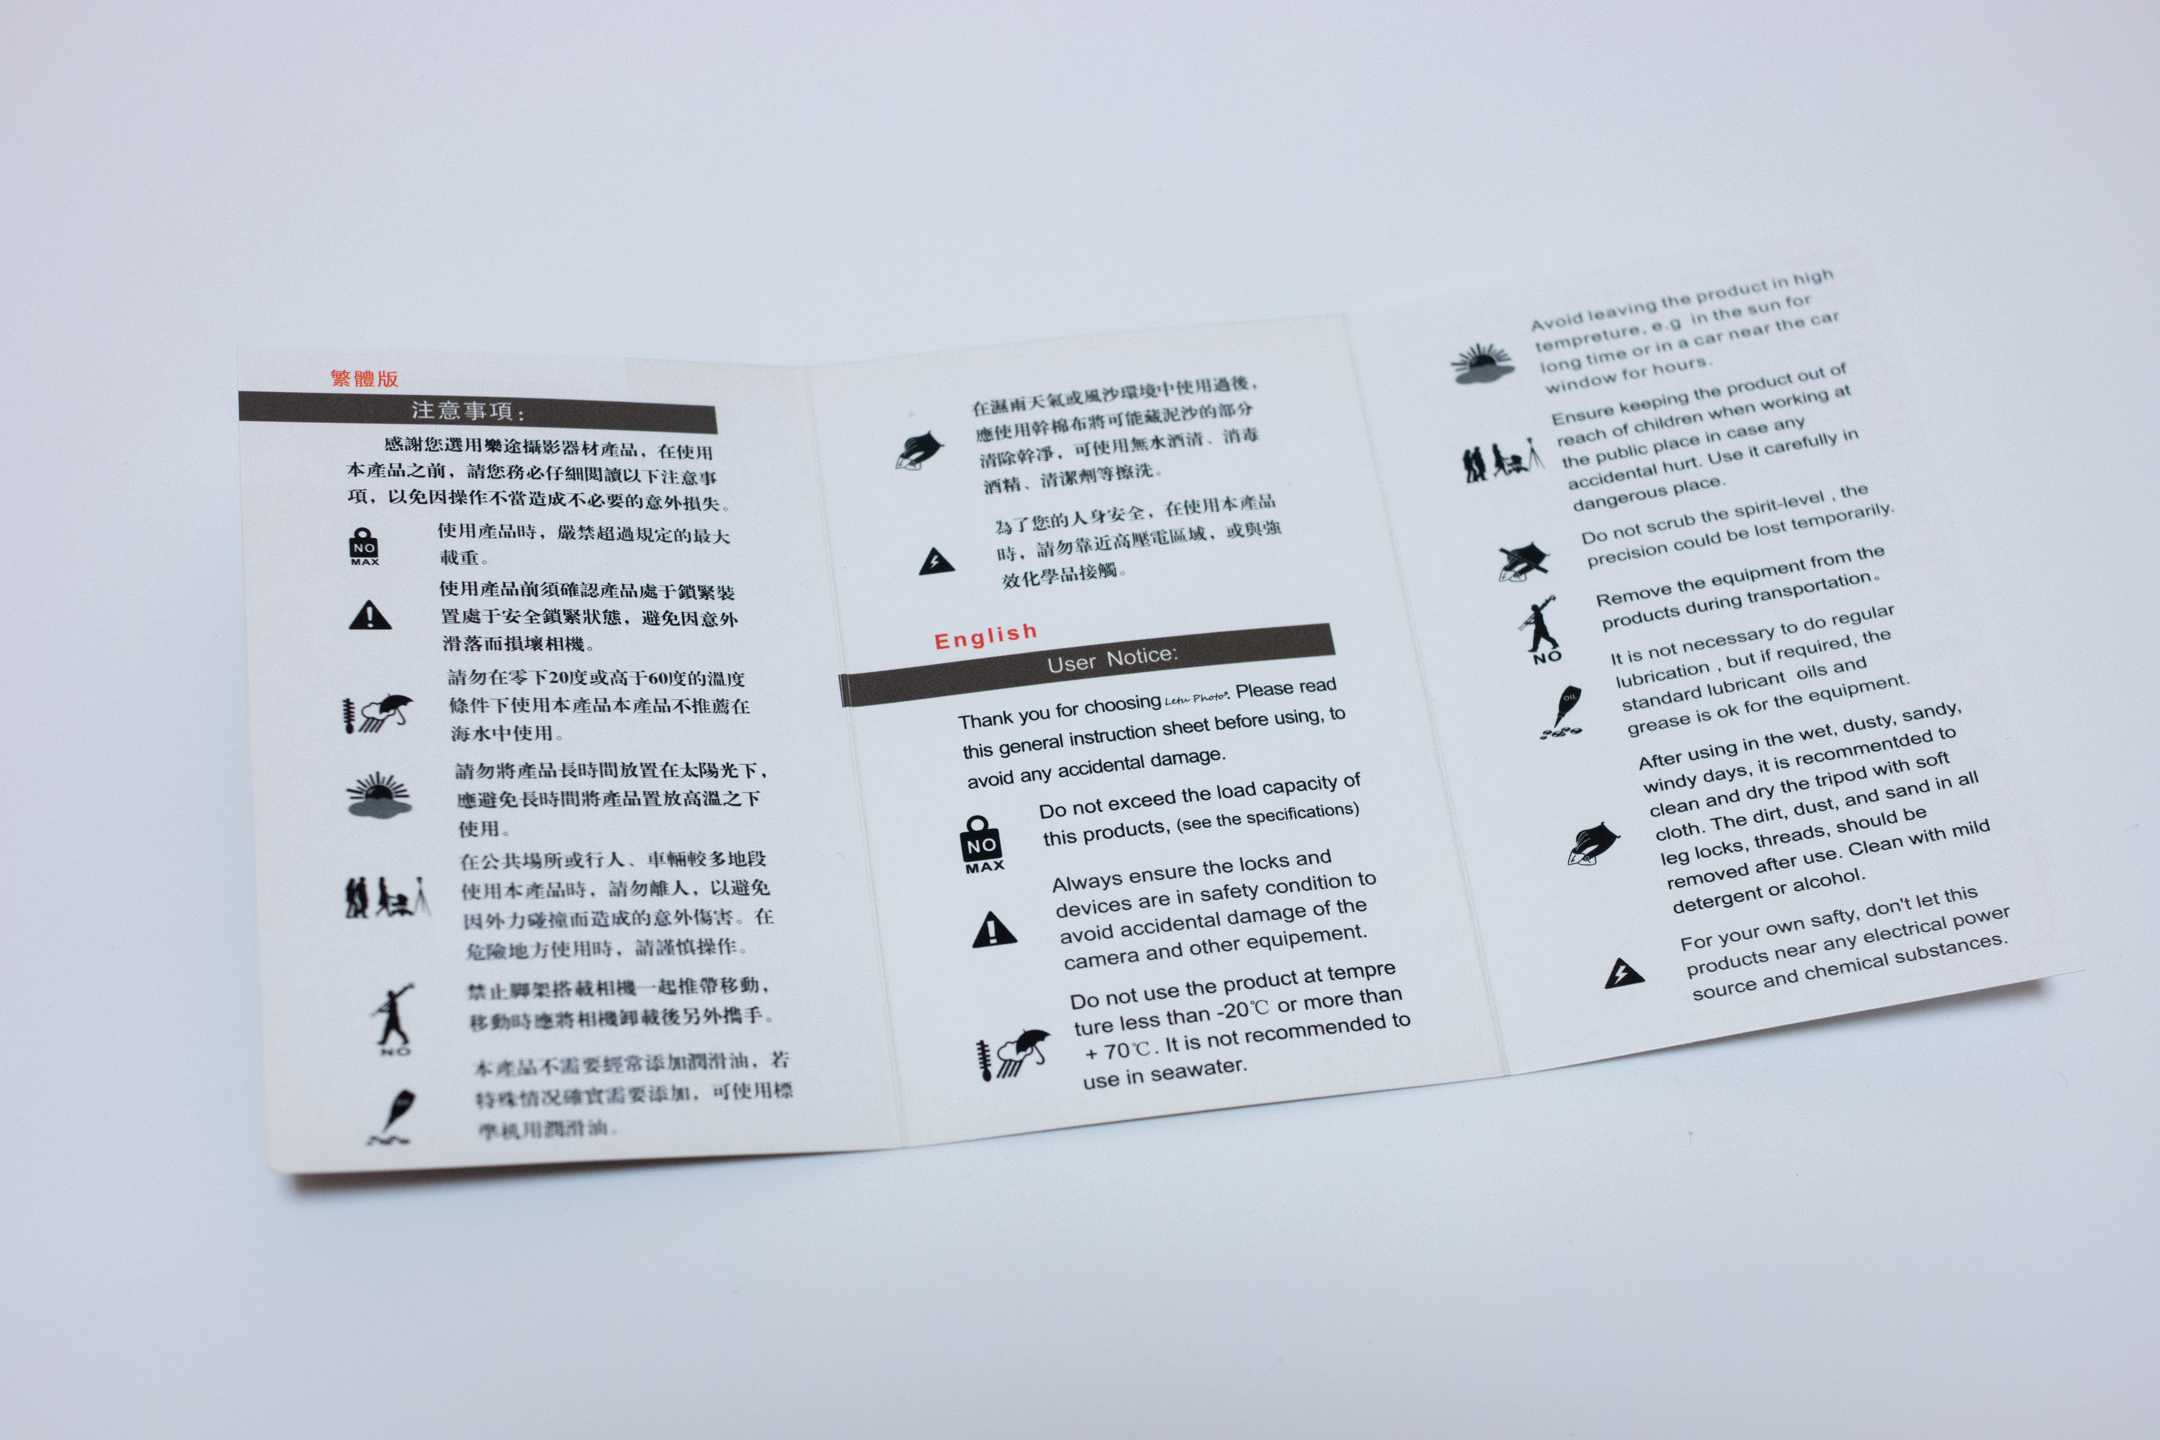 繁體版
注意事項:
感謝您選用樂途攝影器材產品，在使用
本產品之前，請您務必仔細閱讀以下注意事
項，以免因操作不當造成不必要的意外損失。
NO
MAX
使用產品時，嚴禁超過規定的最大
載重。
使用產品前須確認產品處于鎖緊裝
置處于安全鎖緊狀態，避免因意外
滑落而損壞相機。
請勿在零下20度或高于60度的溫度
條件下使用本產品本產品不推薦在
海水中使用。
請勿將產品長時間放置在太陽光下，
應避免長時間將產品置放高溫之下
使用。
在公共場所或行人、車輛較多地段
使用本產品時，請勿離人，以避免
因外力碰撞而造成的意外傷害。在
危險地方使用時，請謹慎操作。
NO
禁止脚架搭載相機一起推帶移動，
移動時應將相機卸載後另外攜手。
本產品不需要經常添加潤滑油，若
特殊情况確實需要添加，可使用標
準机用潤滑油。
在濕雨天氣或風沙環境中使用過後，
應使用幹棉布將可能藏泥沙的部分
清除幹凈，可使用無水酒清、消毒
酒精、清潔劑等擦洗。
為了您的人身安全，在使用本產品
時，請勿靠近高壓電區域，或與強
效化學品接觸。
English
User Notice:
Thank you for choosing Letu Photo®. Please read
this general instruction sheet before using, to
avoid any accidental damage.
NO
MAX
Do not exceed the load capacity of
this products, (see the specifications)
Always ensure the locks and
devices are in safety condition to
avoid accidental damage of the
camera and other equipement.
Do not use the product at tempre
ture less than -20℃ or more than
+ 70℃. It is not recommended to
use in seawater.
Avoid leaving the product in high
tempreture, e.g in the sun for
long time or in a car near the car
window for hours.
Ensure keeping the product out of
reach of children when working at
the public place in case any
accidental hurt. Use it carefully in
dangerous place.
Do not scrub the spirit-level , the
precision could be lost temporarily.
NO
Remove the equipment from the
products during transportation。
OIL
It is not necessary to do regular
lubrication , but if required, the
standard lubricant oils and
grease is ok for the equipment.
After using in the wet, dusty, sandy,
windy days, it is recommentded to
clean and dry the tripod with soft
cloth. The dirt, dust, and sand in all
leg locks, threads, should be
removed after use. Clean with mild
detergent or alcohol.
For your own safty, don't let this
products near any electrical power
source and chemical substances.